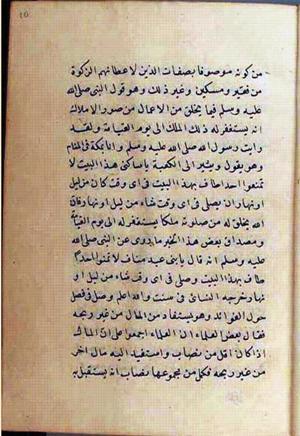 من كونه موصوفا بصفات الذين لاعطائهم الزكوة
من فقير ومسكين وغير ذلك وهو قول النبى صلى الله
عليه وسلم فيما يخلق من الاعمال من صور الاملاك
انه يستغفر له ذلك الملك الى يوم القيامة ولقد
رايت رسول الله صلى الله عليه وسلم وانا بمكة فى المنام
وهو يقول ويشير الى الكعبة ياساكنى هذا البيت لا
تمنعوا احدا طاف بهذا البيت فى اى وقت كان من ليل
او نهار ان يصلى فى اى وقت شاء من ليل او نهار فان
الله يخلق له من صلوته ملكا يستغفر له الى يوم القيامة
ومصداق بعض هذا الخبر ما روى عن النبى صلى الله
عليه وسلم انه قال يا بنى عبد مناف لا تمنعوا احدا
طاف بهذا البيت وصلى فى اى وقت شاء من ليل او
نهار خرجه النسائى فى سننه والله اعلم وصل فى فصل
حول الفوائد وهو يستفاد من المال من غير ربحه
فقال بعض العلماء ان العلماء اجمعوا على ان المال
اذا كان اقل من نصاب واستفيد اليه مال اخر
من غير ربحه فكمل من مجموعهما نصاب انه يستقبل به